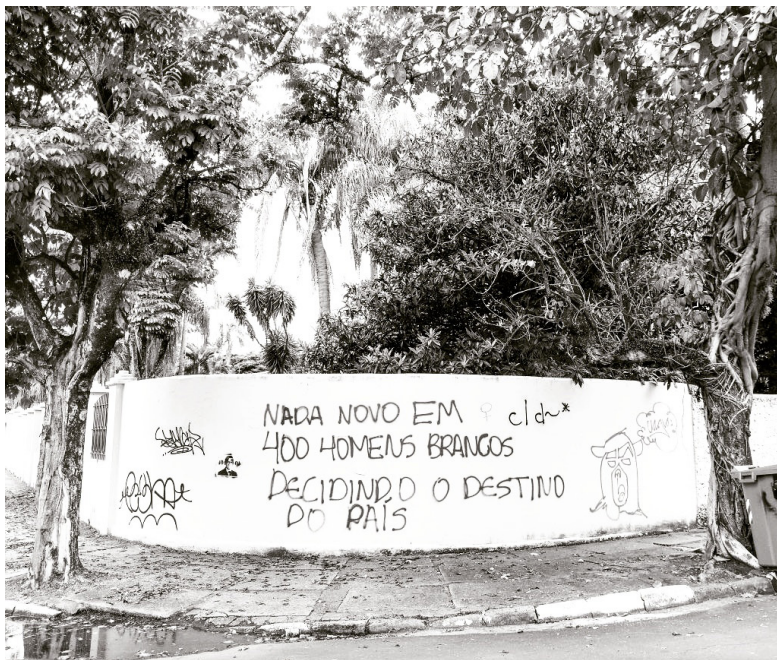 NADA NOVO EM
400 HOMENS BRANCOS
DECIDINDO O DESTINO
DO PAÍS